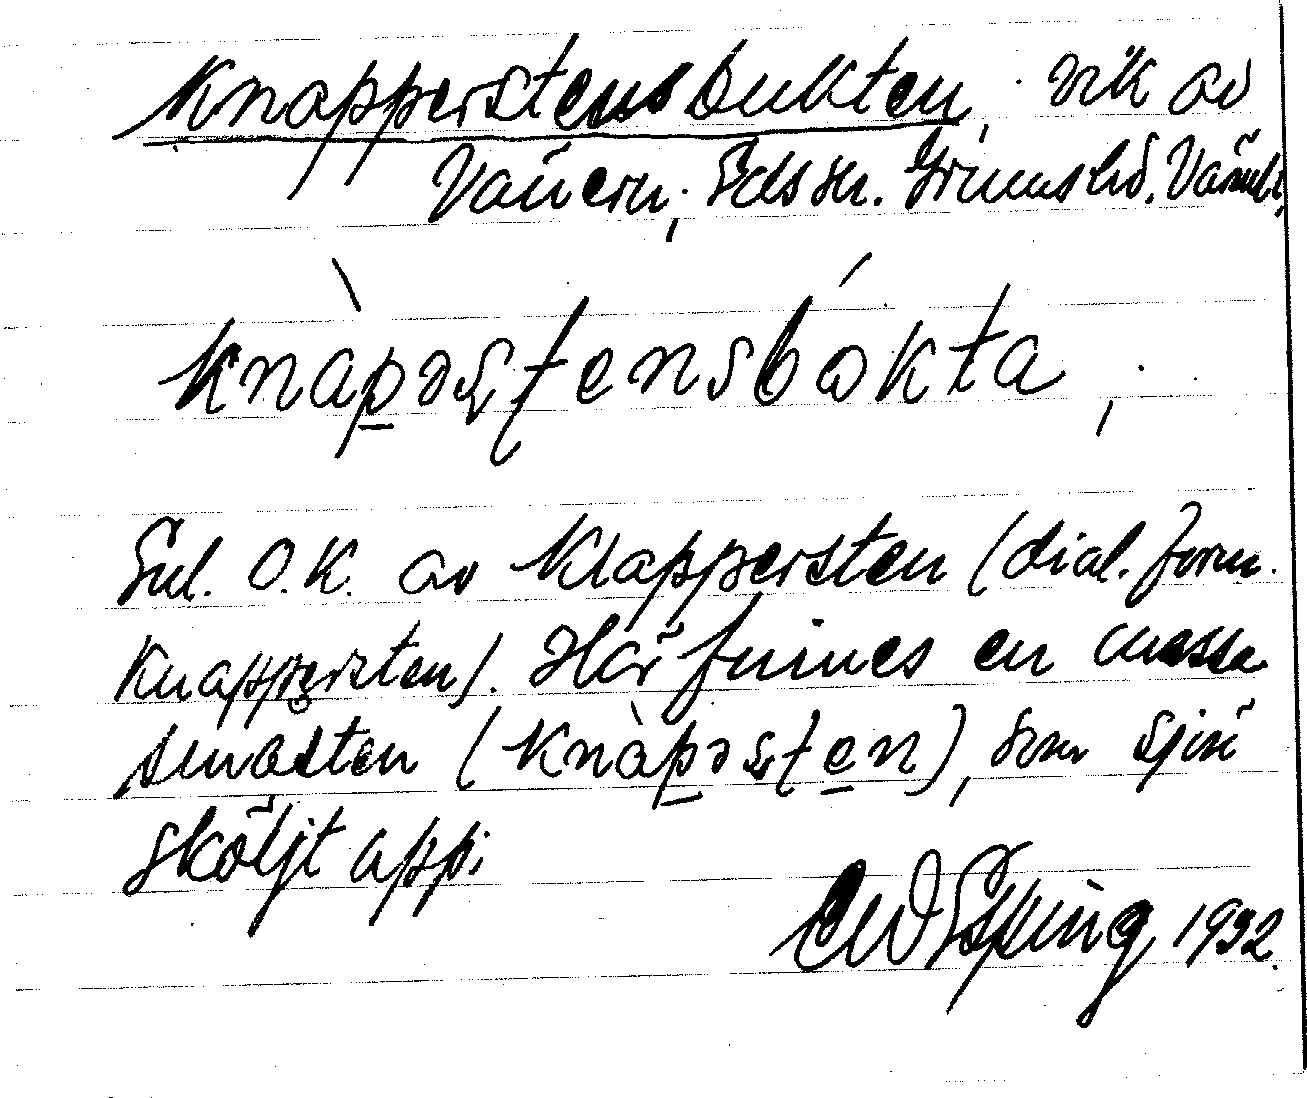 Knapperstensbukten, vik av
Vänern; Eds sn. Grums hd. Värml.
Knàpǝsƫensbɷkta,
Enl. O.K. av Klappersten (dial. form.
Knappersten). Här finnes en massa
småsten (Knàpǝsƫen), som sjön
sköljt opp.
1932.